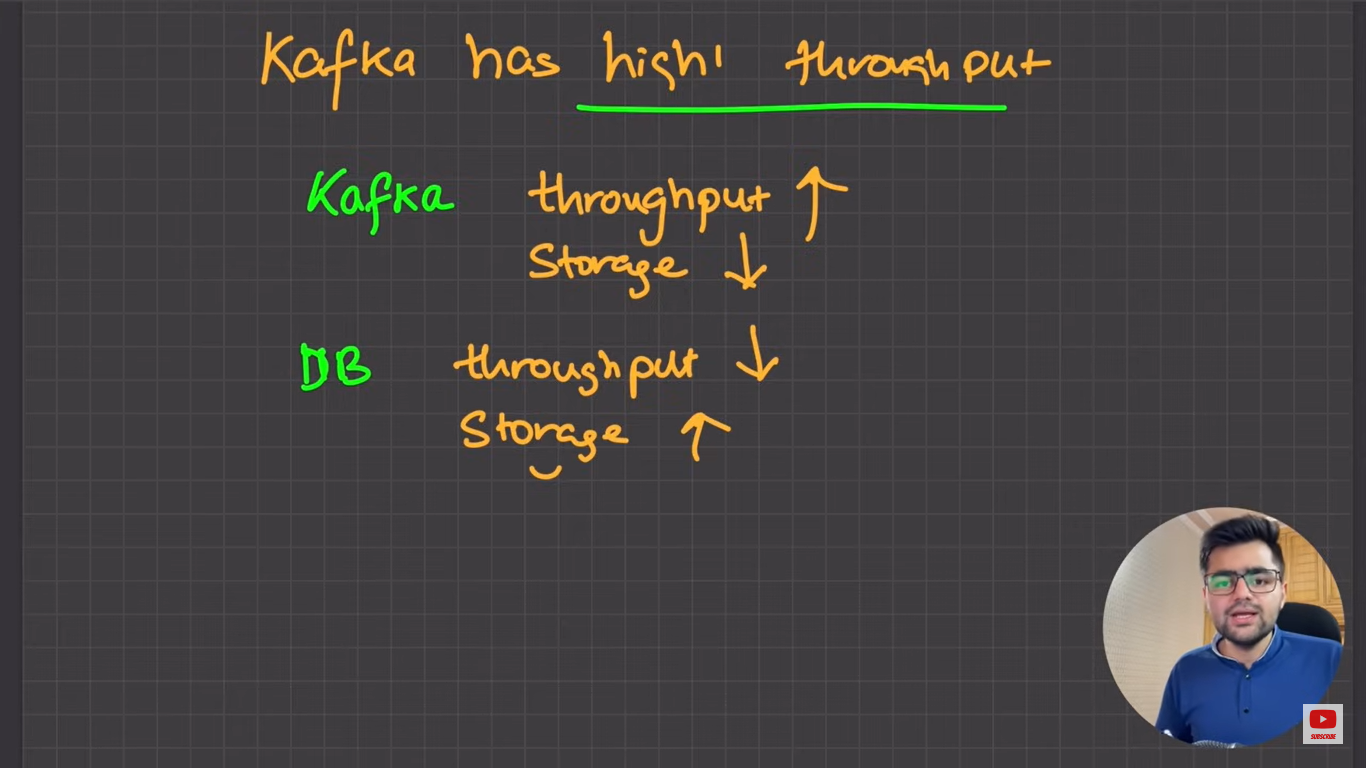 Kafka has high throughput
Kafka throughput ↑
Storage ↓
DB throughput ↓
Storage ↑
SUBSCRIBE